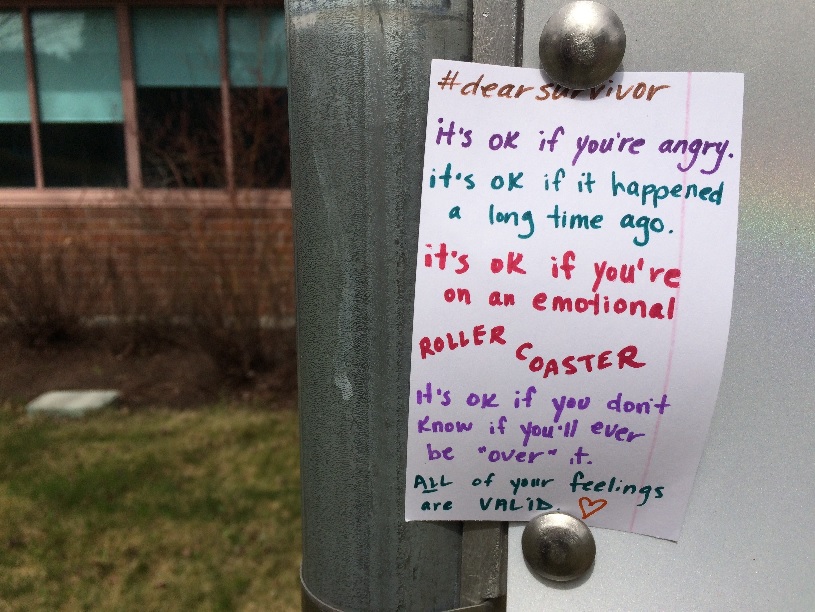 #dearsurvivor
it's ok if you're angry.
it's ok if it happened
a long time ago.
it's ok if you're
on an emotional
ROLLER COASTER
it's ok if you don't
know if you'll ever
be "over" it.
ALL of your feelings
are VALID. ♡